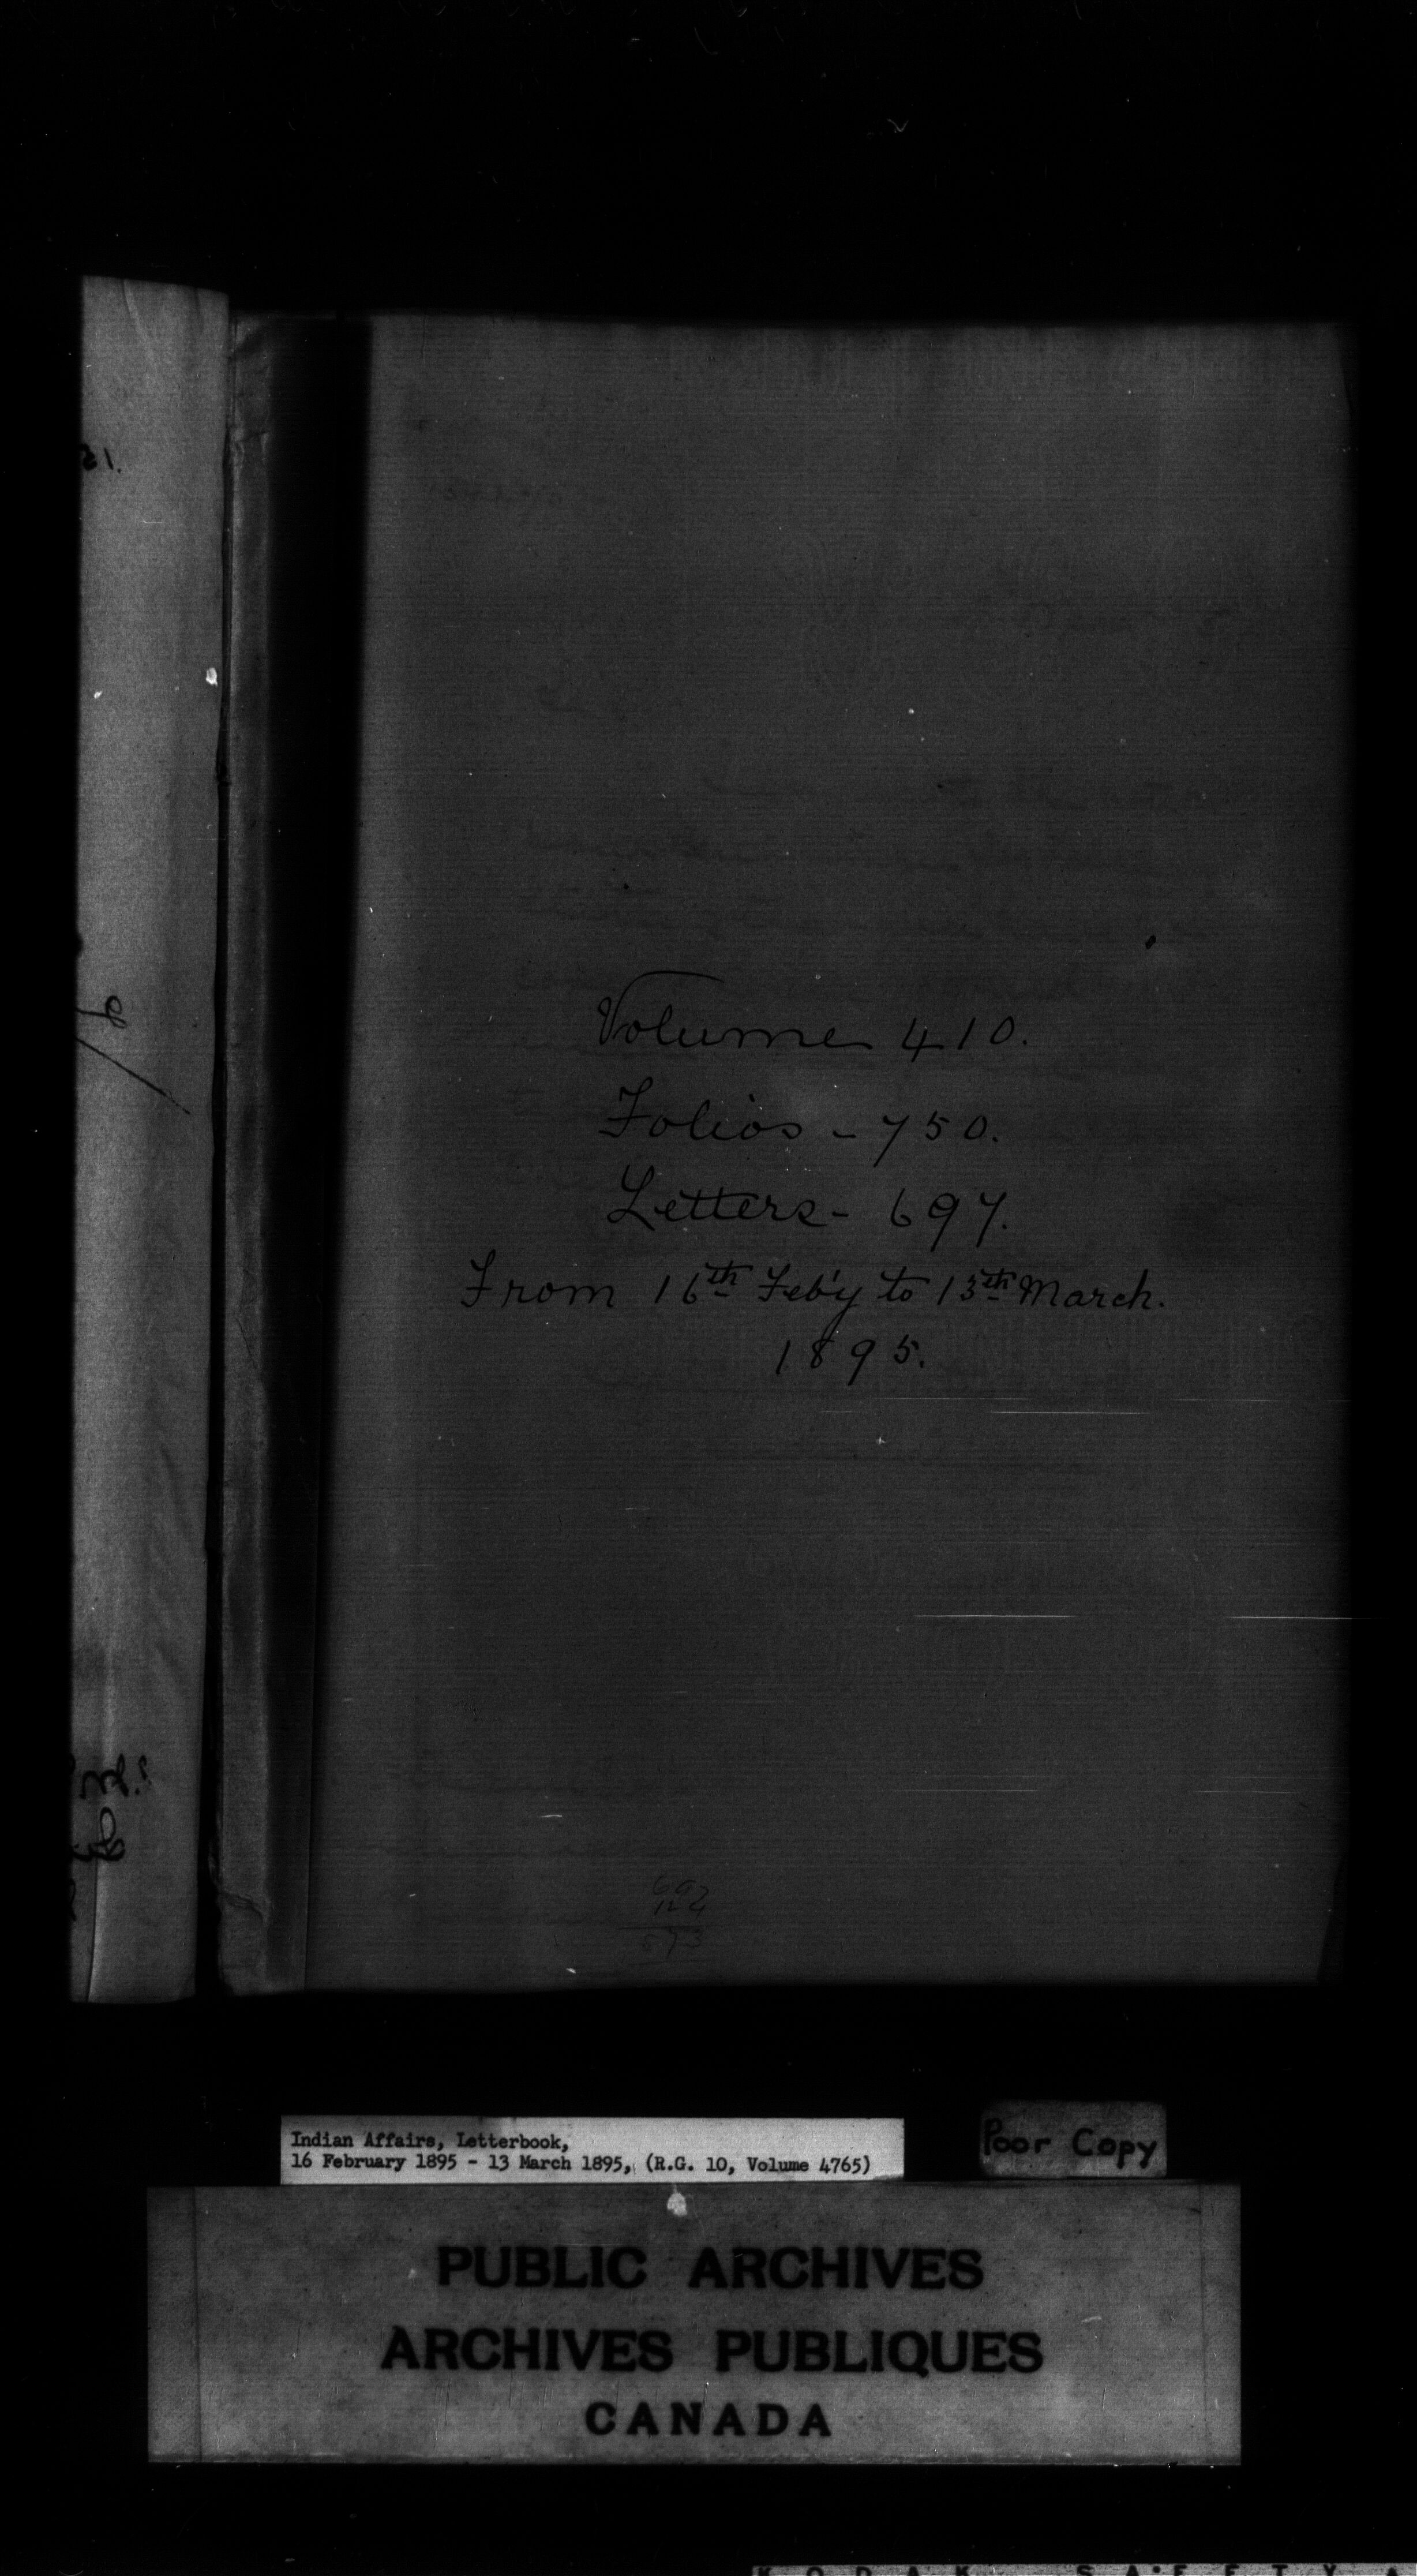 Volume 410.
Folios - 750.
Letters - 697.
From 16th Feb'y to 13th March.
1895.
697
124
573
Indian Affairs, Letterbook,
16 February 1895 - 13 March 1895, (R.G. 10, Volume 4765)
Poor Copy
PUBLIC ARCHIVES
ARCHIVES PUBLIQUES
CANADA
KODAK SAFETY